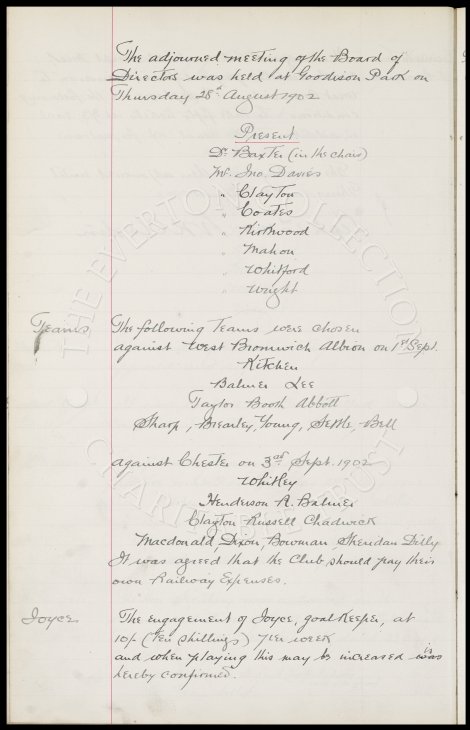 The adjourned meeting of the Board of
Directors was held at Goodison Park on
Thursday 28th August 1902
Present
Dr Baxter (in the chair)
Mr. Jno. Davies
" Clayton
" Coates
" Kirkwood
" Mahon
" Whitford
" Wright
Teams
The following Teams were chosen
against West Bromwich Albion on 1st Sept.
Kitchen
Balmer Lee
Taylor Booth Abbott
Sharp, Brearley, Young, Settle, Bell
against Chester on 3rd Sept. 1902
Whitley
Henderson R. Balmer
Clayton Russell Chadwick
Macdonald, Dixon, Bowman, Sheridan Dilly
It was agreed that the Club should pay their
own Railway Expenses.
Joyce
The engagement of Joyce, goal keeper, at
10/- (Ten shillings) per week
and when playing this may be increased is was
hereby confirmed.
THE EVERTON COLLECTION
CHARITABLE TRUST